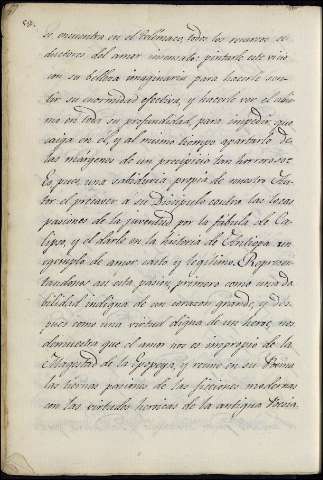 se encuentra en el Telémaco, todos los recursos se-
ductores del amor insensato: pintarle este vicio
con su belleza imaginaria para hacerle sen-
tir su enormidad efectiva, y hacerle ver el abis-
mo en toda su profundidad, para impedir que
caiga en él, y al mismo tiempo apartarlo de
las márgenes de un precipicio tan horroroso?
Es pues, una sabiduría propia de nuestro Au-
tor el precaver a su Discipulo contra las locas
pasiones de la juventud por la fabula de Ca-
lipso, y el darle en la historia de Antiope, un
egemplo de amor casto y legitimo. Represen-
tandonos asi esta pasion, primero como una de
bilidad indigna de un corazon grande, y des-
pues como una virtud digna de un heroe, nos
demuestra que el amor no es impropio de la
Magestad de la Epopeya, y reune en su Poema
las tiernas pasiones de las ficciones modernas
con las virtudes heroicas de la antigua Poesia.